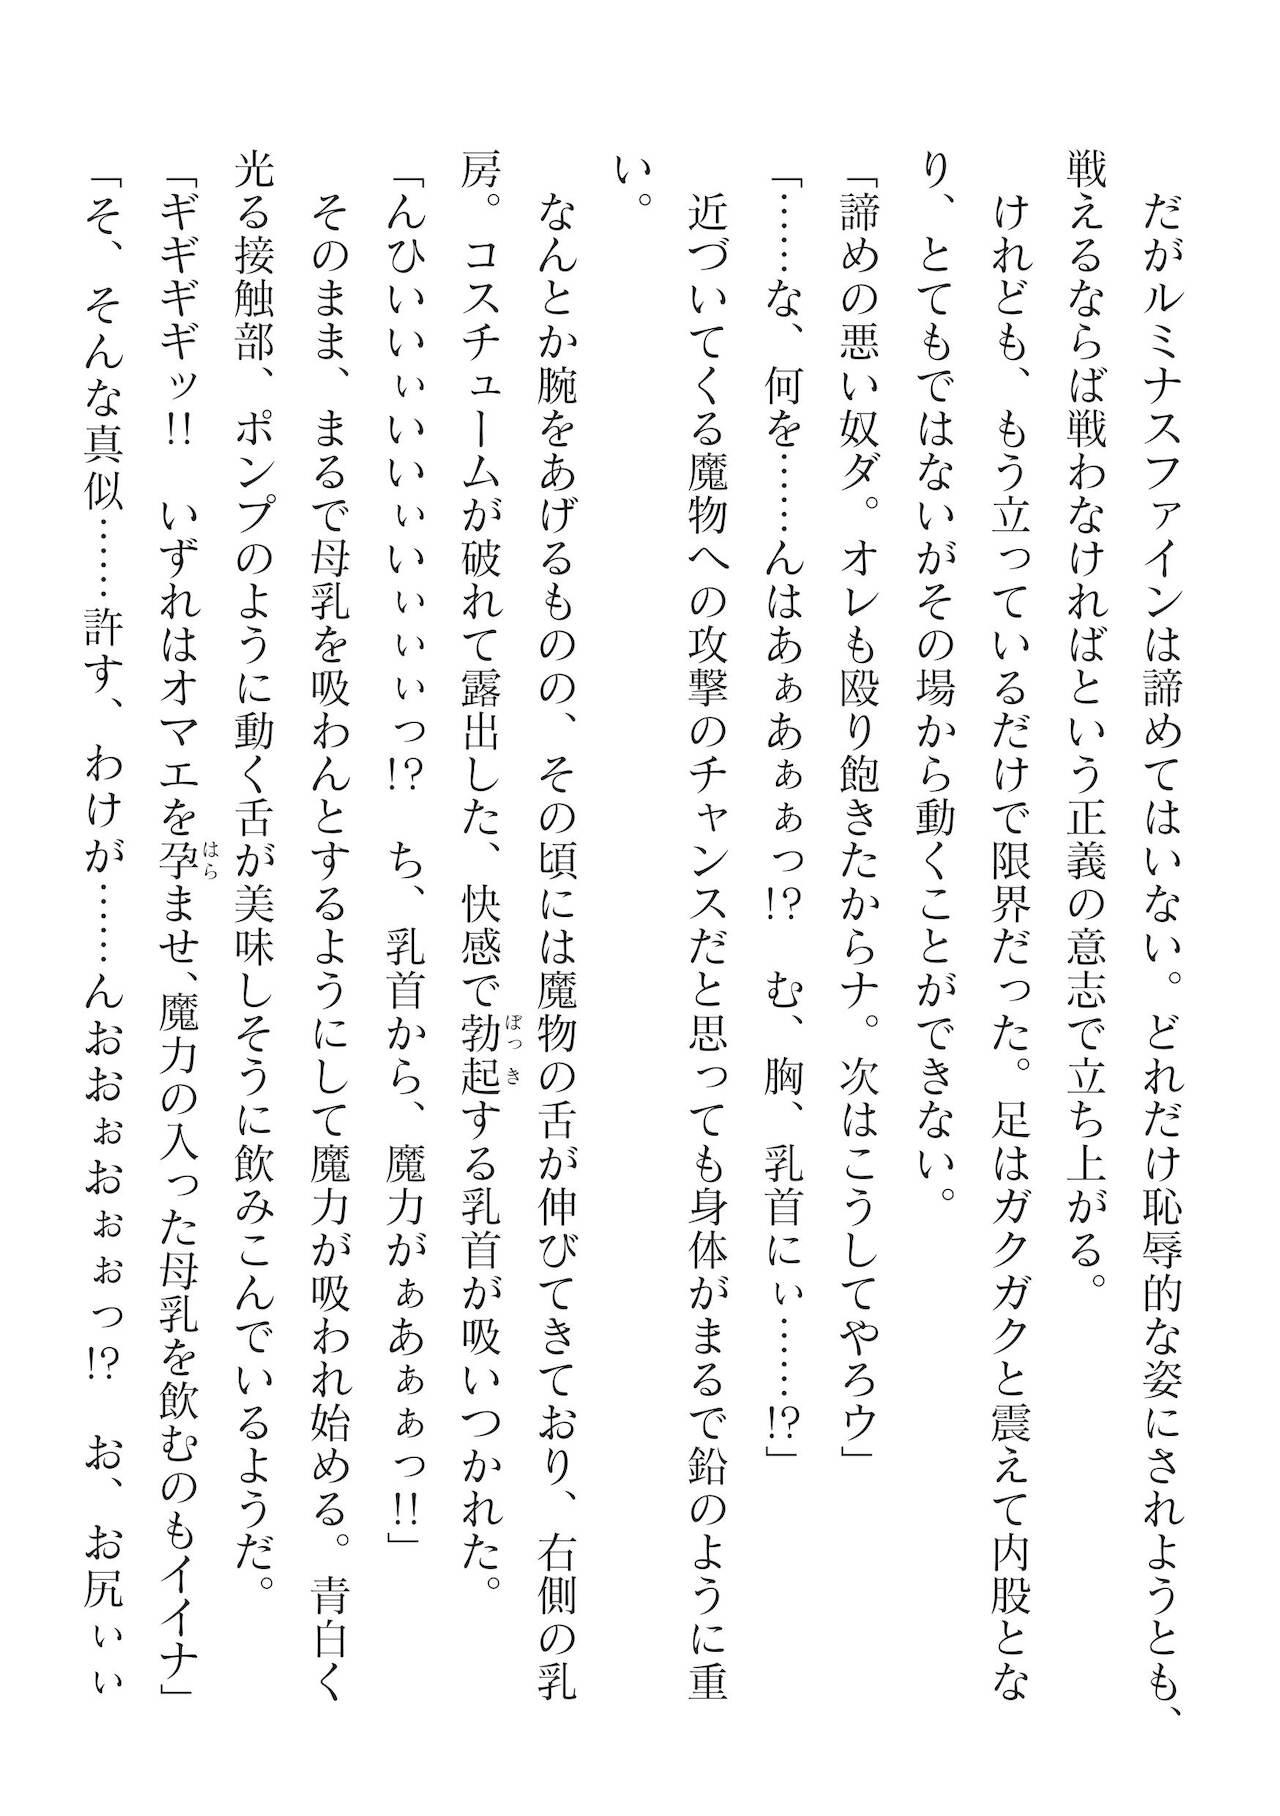 だがルミナスファインは諦めてはいない。どれだけ恥辱的な姿にされようとも、
戦えるならば戦わなければという正義の意志で立ち上がる。
けれども、もう立っているだけで限界だった。足はガクガクと震えて内股とな
り、とてもではないがその場から動くことができない。
「諦めの悪い奴ダ。オレも殴り飽きたからナ。次はこうしてやろウ」
「……な、何を……んはあぁあぁぁっ!?　む、胸、乳首にぃ……!?」
近づいてくる魔物への攻撃のチャンスだと思っても身体がまるで鉛のように重
い。
なんとか腕をあげるものの、その頃には魔物の舌が伸びてきており、右側の乳
ぼっき
房。コスチュームが破れて露出した、快感で勃起する乳首が吸いつかれた。
「んひいいぃいいぃいぃぃぃっ!?　ち、乳首から、魔力がぁあぁぁっ!!」
そのまま、まるで母乳を吸わんとするようにして魔力が吸われ始める。青白く
光る接触部、ポンプのように動く舌が美味しそうに飲みこんでいるようだ。
はら
「ギギギギッ!!　いずれはオマエを孕ませ、魔力の入った母乳を飲むのもイイナ」
「そ、そんな真似……許す、わけが……んおおぉおぉぉっ!?　お、お尻ぃぃ